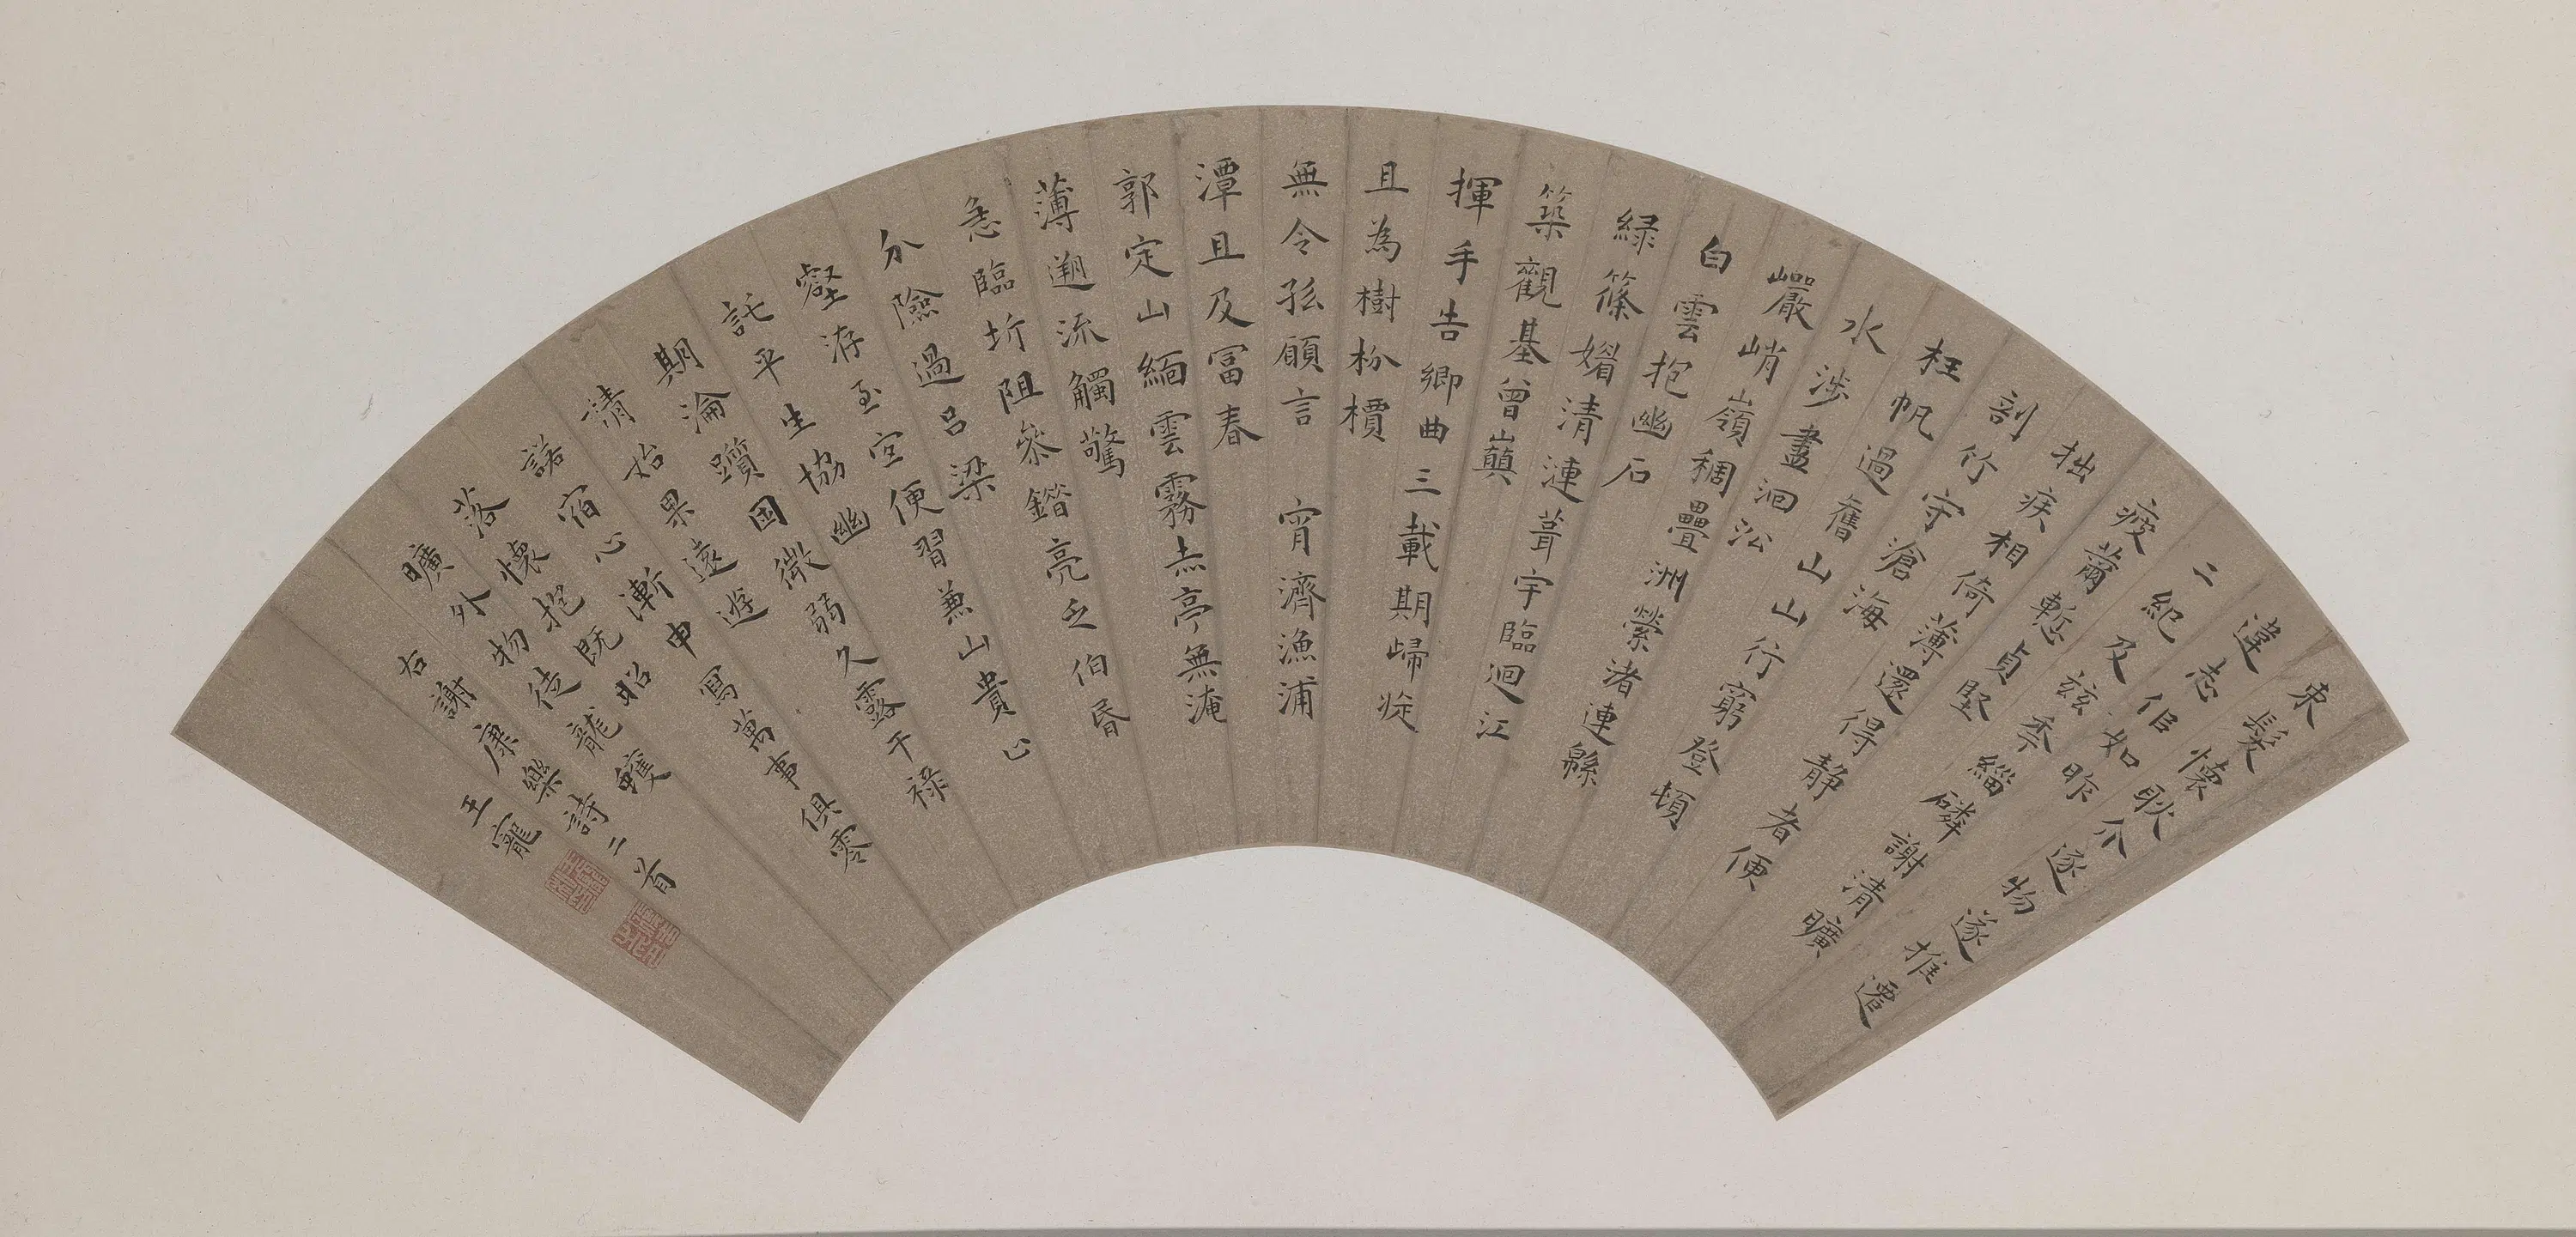 束髮懷耿介逐物遂推遷
違志佀如昨
二紀及茲秊緇磷謝清曠
疲薾慙貞堅
拙疾相倚薄還得靜者便
剖竹守滄海
枉帆過舊山山行窮登頓
水涉盡洄㳂
巖峭嶺稠疊洲縈渚連緜
白雲抱幽石
綠篠媚清漣葺宇臨迴江
築觀基曾巔
揮手告鄉曲三載期歸旋
且為樹枌檟
無令孤願言 宵濟漁浦
潭旦及富春
郭定山緬雲霧赤亭無淹
薄遡流觸驚
急臨圻阻參錯亮乏伯昏
分險過呂梁
壑洊至宜便習兼山貴止
託平生協幽
期淪躓困微弱久露干祿
請始果遠遊
諾宿心漸申寫萬事俱零
落懷抱既昭
曠外物徒龍蠖
右謝康樂詩二首
王寵